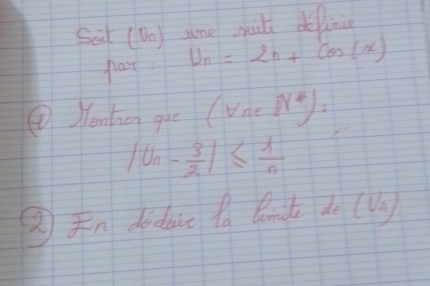 Soit (Un) une suite définie
par : Un = 2n + Cos(x)
① Montrer que (∀n∈ N*) :
|Un - 3/2| ≤ 1/n
② En déduire la limite de (Un)